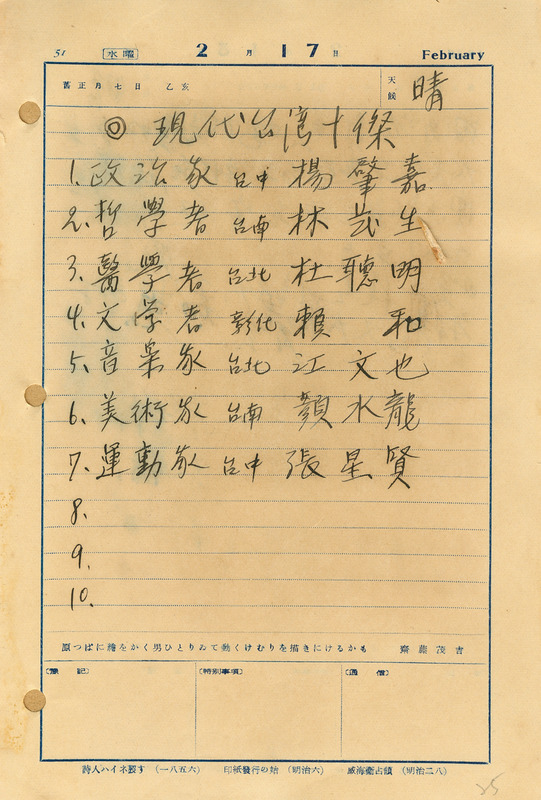 51 水曜 2月17日 February
舊正月七日 乙亥
天候 晴
◎ 現代台湾十傑
1. 政治家 台中 楊肇嘉
2. 哲學者 台南 林茂生
3. 醫學者 台北 杜聰明
4. 文学者 彰化 賴和
5. 音楽家 台北 江文也
6. 美術家 台南 顏水龍
7. 運動家 台中 張星賢
8.
9.
10.
原つぱに繪をかく男ひとりゐて動くけむりを描きにけるかも 齋藤茂吉
〔豫記〕 〔特別事項〕 〔通信〕
詩人ハイネ歿す (一八五六) 印紙發行の始 (明治六) 威海衞占領 (明治二八)
25